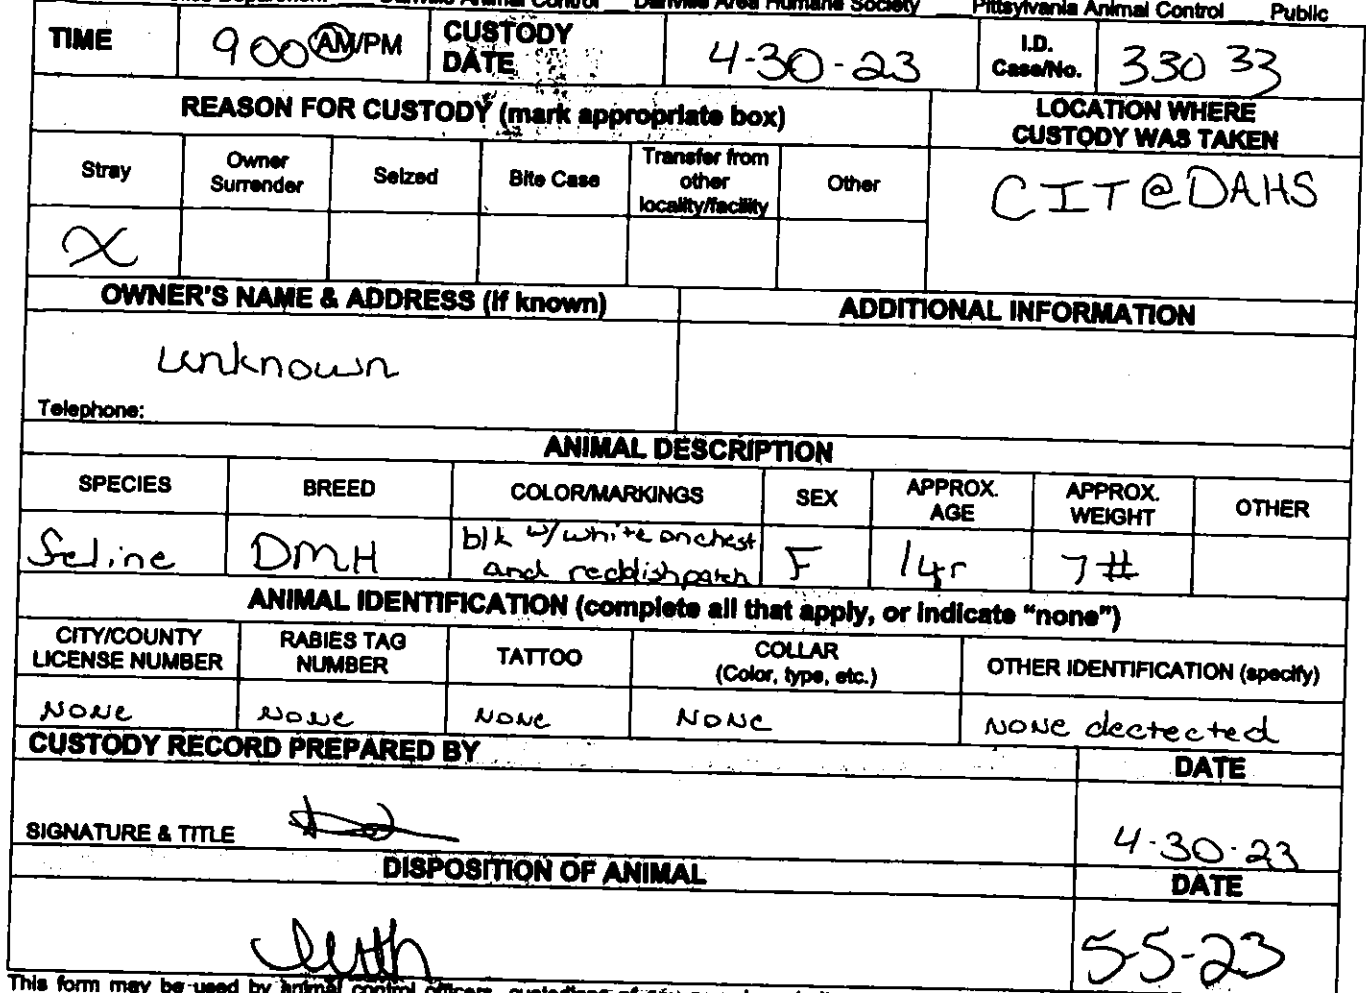 Danville Animal Control Danville Area Humane Society Pittsylvania Animal Control Public
TIME 9 00 AM/PM CUSTODY DATE 4-30-23 I.D. Case/No. 330 33
REASON FOR CUSTODY (mark appropriate box) LOCATION WHERE CUSTODY WAS TAKEN
Stray Owner Surrender Seized Bite Case Transfer from other locality/facility Other CIT@DAHS
X
OWNER'S NAME & ADDRESS (if known) ADDITIONAL INFORMATION
unknown
Telephone:
ANIMAL DESCRIPTION
SPECIES BREED COLOR/MARKINGS SEX APPROX. AGE APPROX. WEIGHT OTHER
feline DMH blk w/white on chest and reddish patch F 1yr 7#
ANIMAL IDENTIFICATION (complete all that apply, or indicate "none")
CITY/COUNTY LICENSE NUMBER RABIES TAG NUMBER TATTOO COLLAR (Color, type, etc.) OTHER IDENTIFICATION (specify)
NONE NONE NONE NONE NONE dectected
CUSTODY RECORD PREPARED BY DATE
SIGNATURE & TITLE 4-30-23
DISPOSITION OF ANIMAL DATE
5-5-23
This form may be used by animal control officers, custodians of